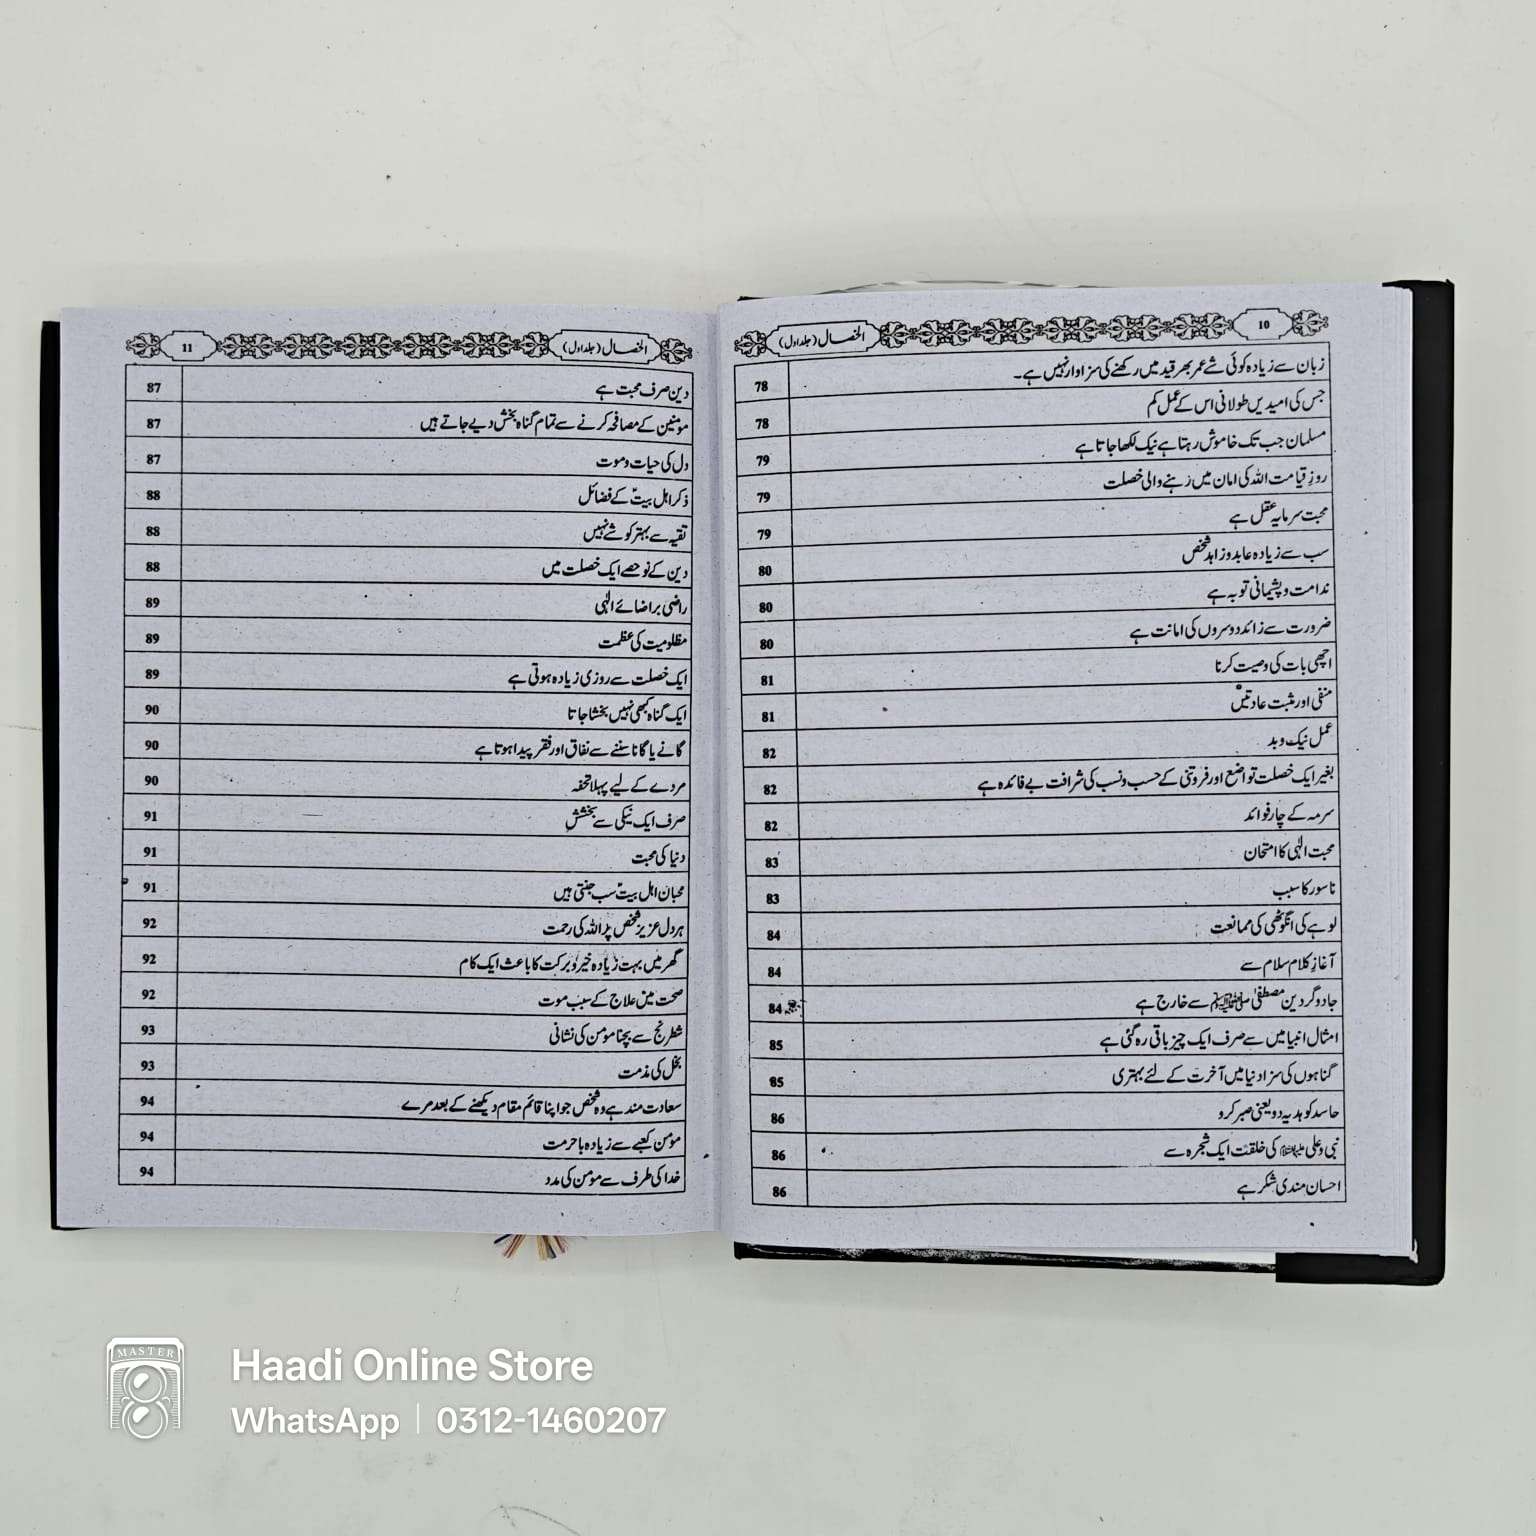 10
الخصال (جلد اول)
زبان سے زیادہ کوئی شے عمر بھر قید میں رکھنے کی سزاوار نہیں ہے۔ 78
جس کی امیدیں طولانی اس کے عمل کم 78
مسلمان جب تک خاموش رہتا ہے نیک لکھا جاتا ہے 79
روزِ قیامت اللہ کی امان میں رہنے والی خصلت 79
محبت سرمایہ عقل ہے 79
سب سے زیادہ عابد و زاہد شخص 80
ندامت و پشیمانی توبہ ہے 80
ضرورت سے زائد دوسروں کی امانت ہے 80
اچھی بات کی وصیت کرنا 81
منفی اور مثبت عادتیں 81
عمل نیک و بد 82
بغیر ایک خصلت تواضع اور فروتنی کے حسب و نسب کی شرافت بے فائدہ ہے 82
سرمہ کے چار فوائد 82
محبت الٰہی کا امتحان 83
ناسور کا سبب 83
لوہے کی انگوٹھی کی ممانعت 84
آغاز کلام سلام سے 84
جادوگر دین مصطفیٰ ﷺ سے خارج ہے 84
امثال انبیا میں سے صرف ایک چیز باقی رہ گئی ہے 85
گناہوں کی سزا دنیا میں آخرت کے لئے بہتری 85
حاسد کو ہدیہ دو یعنی صبر کرو 86
نبی و علی علیہما السلام کی خلقت ایک شجرہ سے 86
احسان مندی شکر ہے 86
الخصال (جلد اول)
11
دین صرف محبت ہے 87
مومنین کے مصافحہ کرنے سے تمام گناہ بخش دیے جاتے ہیں 87
دل کی حیات و موت 87
ذکر اہل بیتؑ کے فضائل 88
تقیہ سے بہتر کوئی شے نہیں 88
دین کے نو حصے ایک خصلت میں 88
راضی برضائے الٰہی 89
مظلومیت کی عظمت 89
ایک خصلت سے روزی زیادہ ہوتی ہے 89
ایک گناہ کبھی نہیں بخشا جاتا 90
گانے یا گانا سننے سے نفاق اور فقر پیدا ہوتا ہے 90
مردے کے لیے پہلا تحفہ 90
صرف ایک نیکی سے بخشش 91
دنیا کی محبت 91
محبان اہل بیتؑ سب جنتی ہیں 91
ہر دل عزیز شخص پر اللہ کی رحمت 92
گھر میں بہت زیادہ خیر و برکت کا باعث ایک کام 92
صحت میں علاج کے سبب موت 92
شطرنج سے بچنا مومن کی نشانی 93
بخل کی مذمت 93
سعادت مند ہے وہ شخص جو اپنا قائم مقام دیکھنے کے بعد مرے 94
مؤمن کعبے سے زیادہ باحرمت 94
خدا کی طرف سے مومن کی مدد 94
MASTER
Haadi Online Store
WhatsApp | 0312-1460207